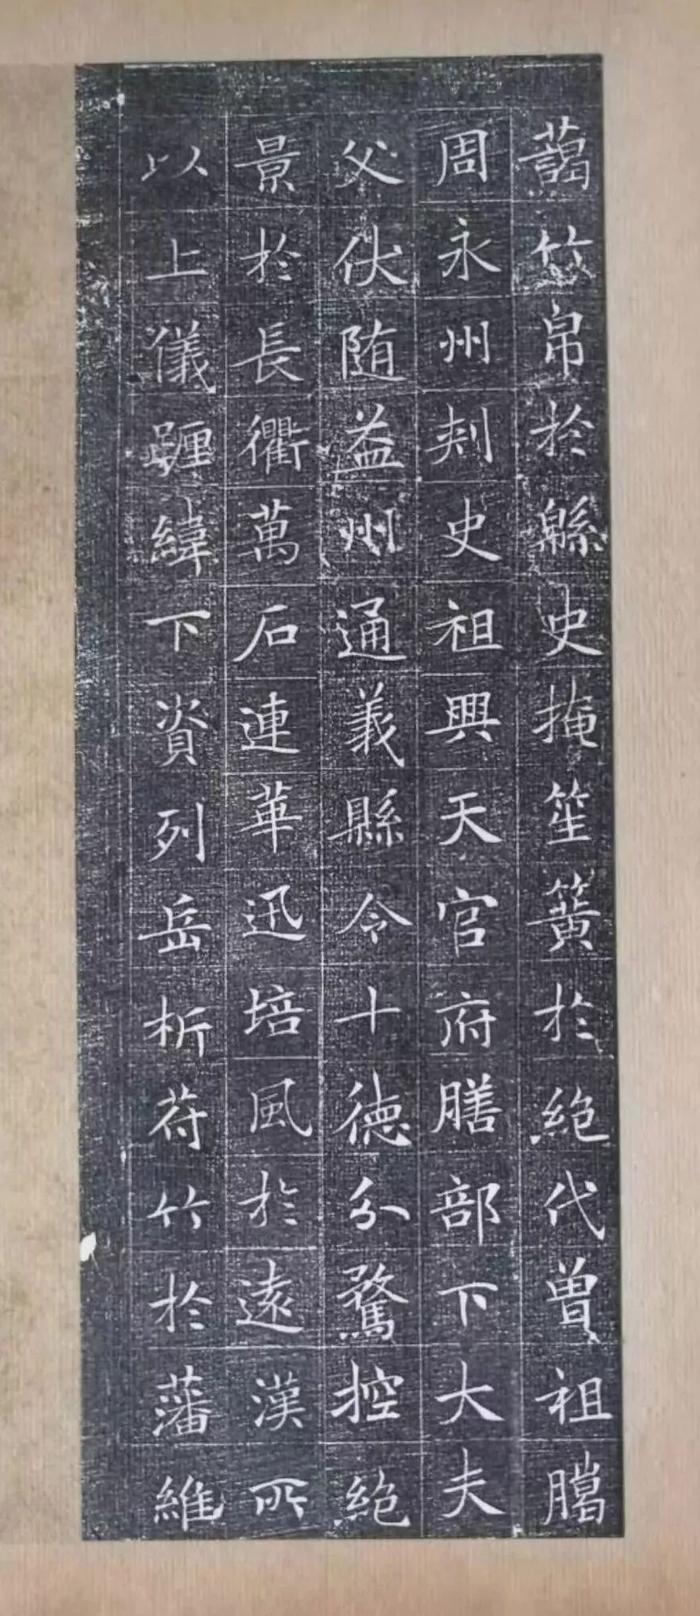 藹竹帛於緜史掩笙簧於絶代曽祖騰
周永州刾史祖興天官府膳部下大夫
父伏随益州通義縣令十德分騖控絶
景於長衢萬石連華迅培風於遠漢所
以上儀躔緯下資列岳析苻竹於藩維